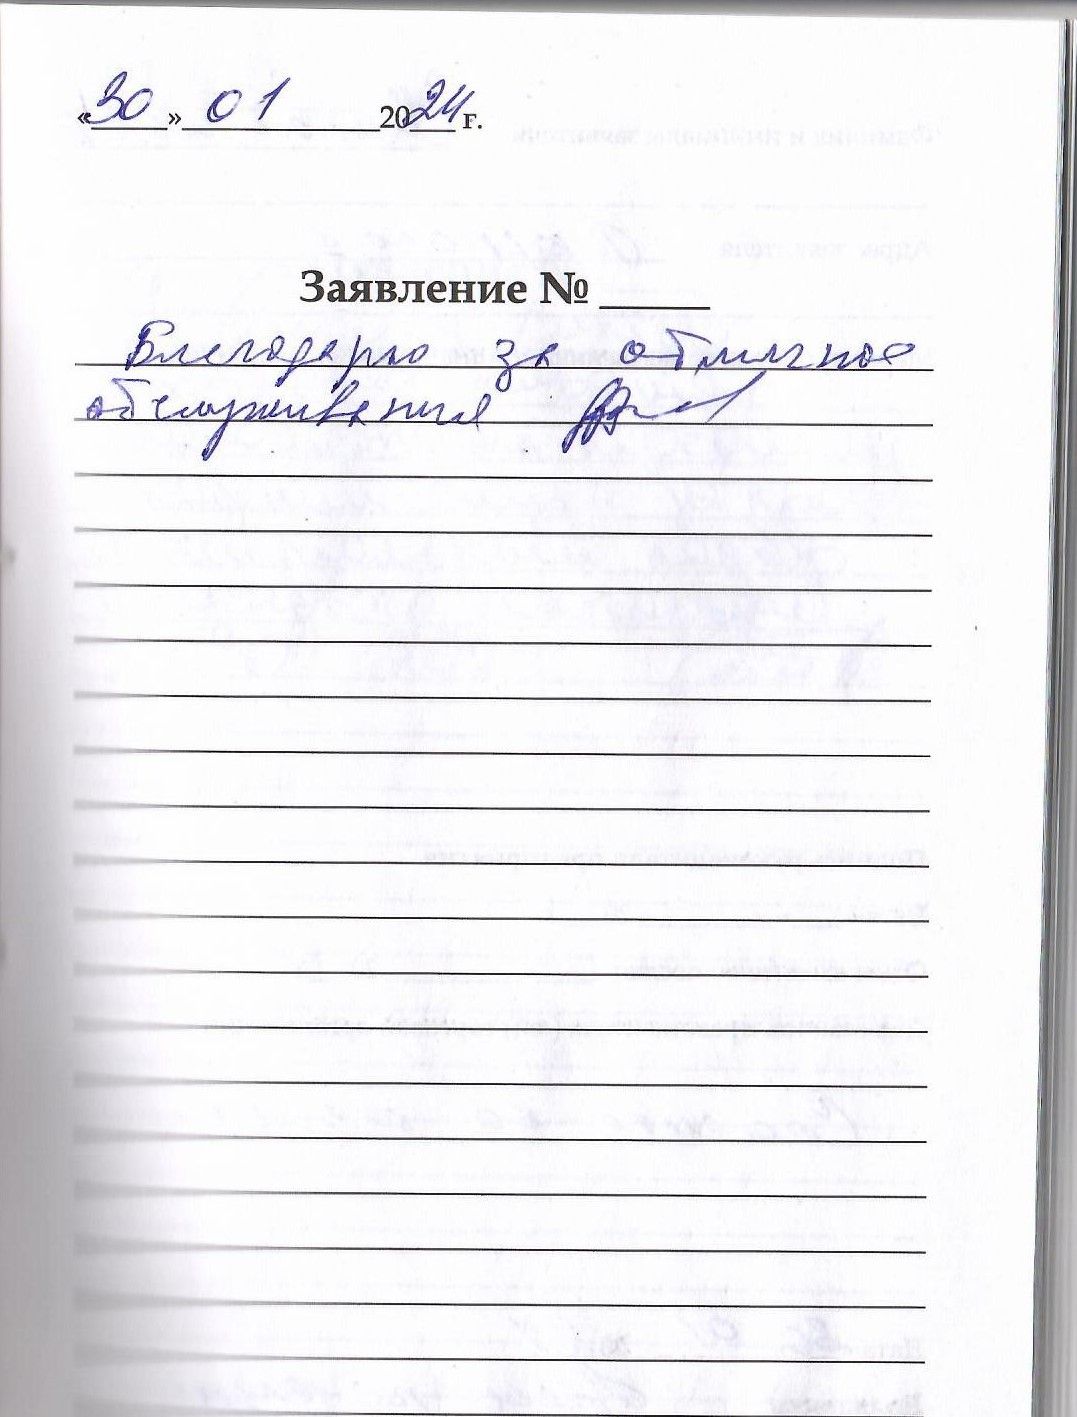 «30» 01 2024 г.
Заявление № _____
Благодарю за отличное
обслуживания